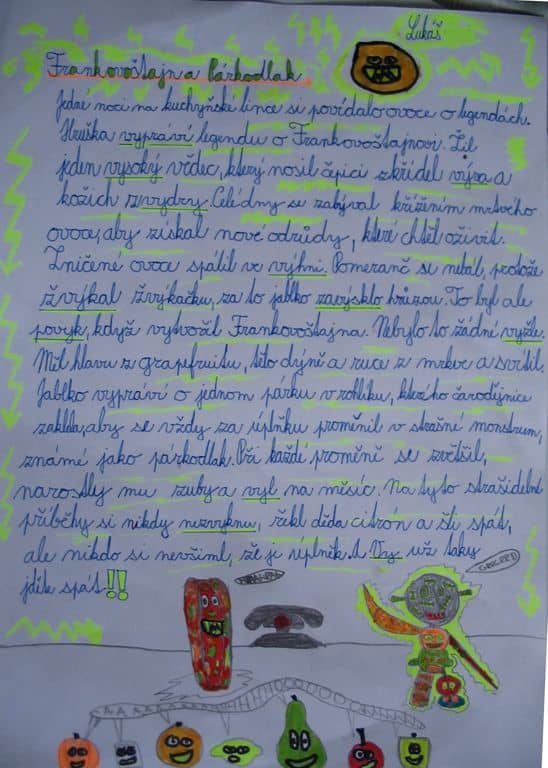 Lukáš
Frankovoštajn a Párkodlak
Jedné noci na kuchyňské lince si povídalo ovoce o legendách.
Hruška vypráví legendu o Frankovoštajnovi. Žil
jeden vysoký vědec, který nosil čepici z křídel výra a
kožich z vydry. Celé dny se zabýval křížením mrtvého
ovoce, aby získal nové odrůdy, které chtěl oživit.
Zničené ovoce spálil ve výhni. Pomeranč se nebál, protože
žvýkal žvýkačku, za to jablko zavysklo hrůzou. To byl ale
povyk, když vytvořil Frankovoštajna. Nebylo to žádné vyžle.
Měl hlavu z grapefruitu, tělo dýně a ruce z mrkve a svítil.
Jablko vypráví o jednom párku v rohlíku, kterého čarodějnice
zaklela, aby se vždy za úplňku proměnil v strašné monstrum,
známé jako párkodlak. Při každé proměně se zvětšil,
narostly mu zuby a vyl na měsíc. Na tyto strašidelné
příběhy si nikdy nezvyknu, řekl děda citrón a šli spát,
ale nikdo si nevšiml, že je úplněk. A Vy už taky
jděte spát!!